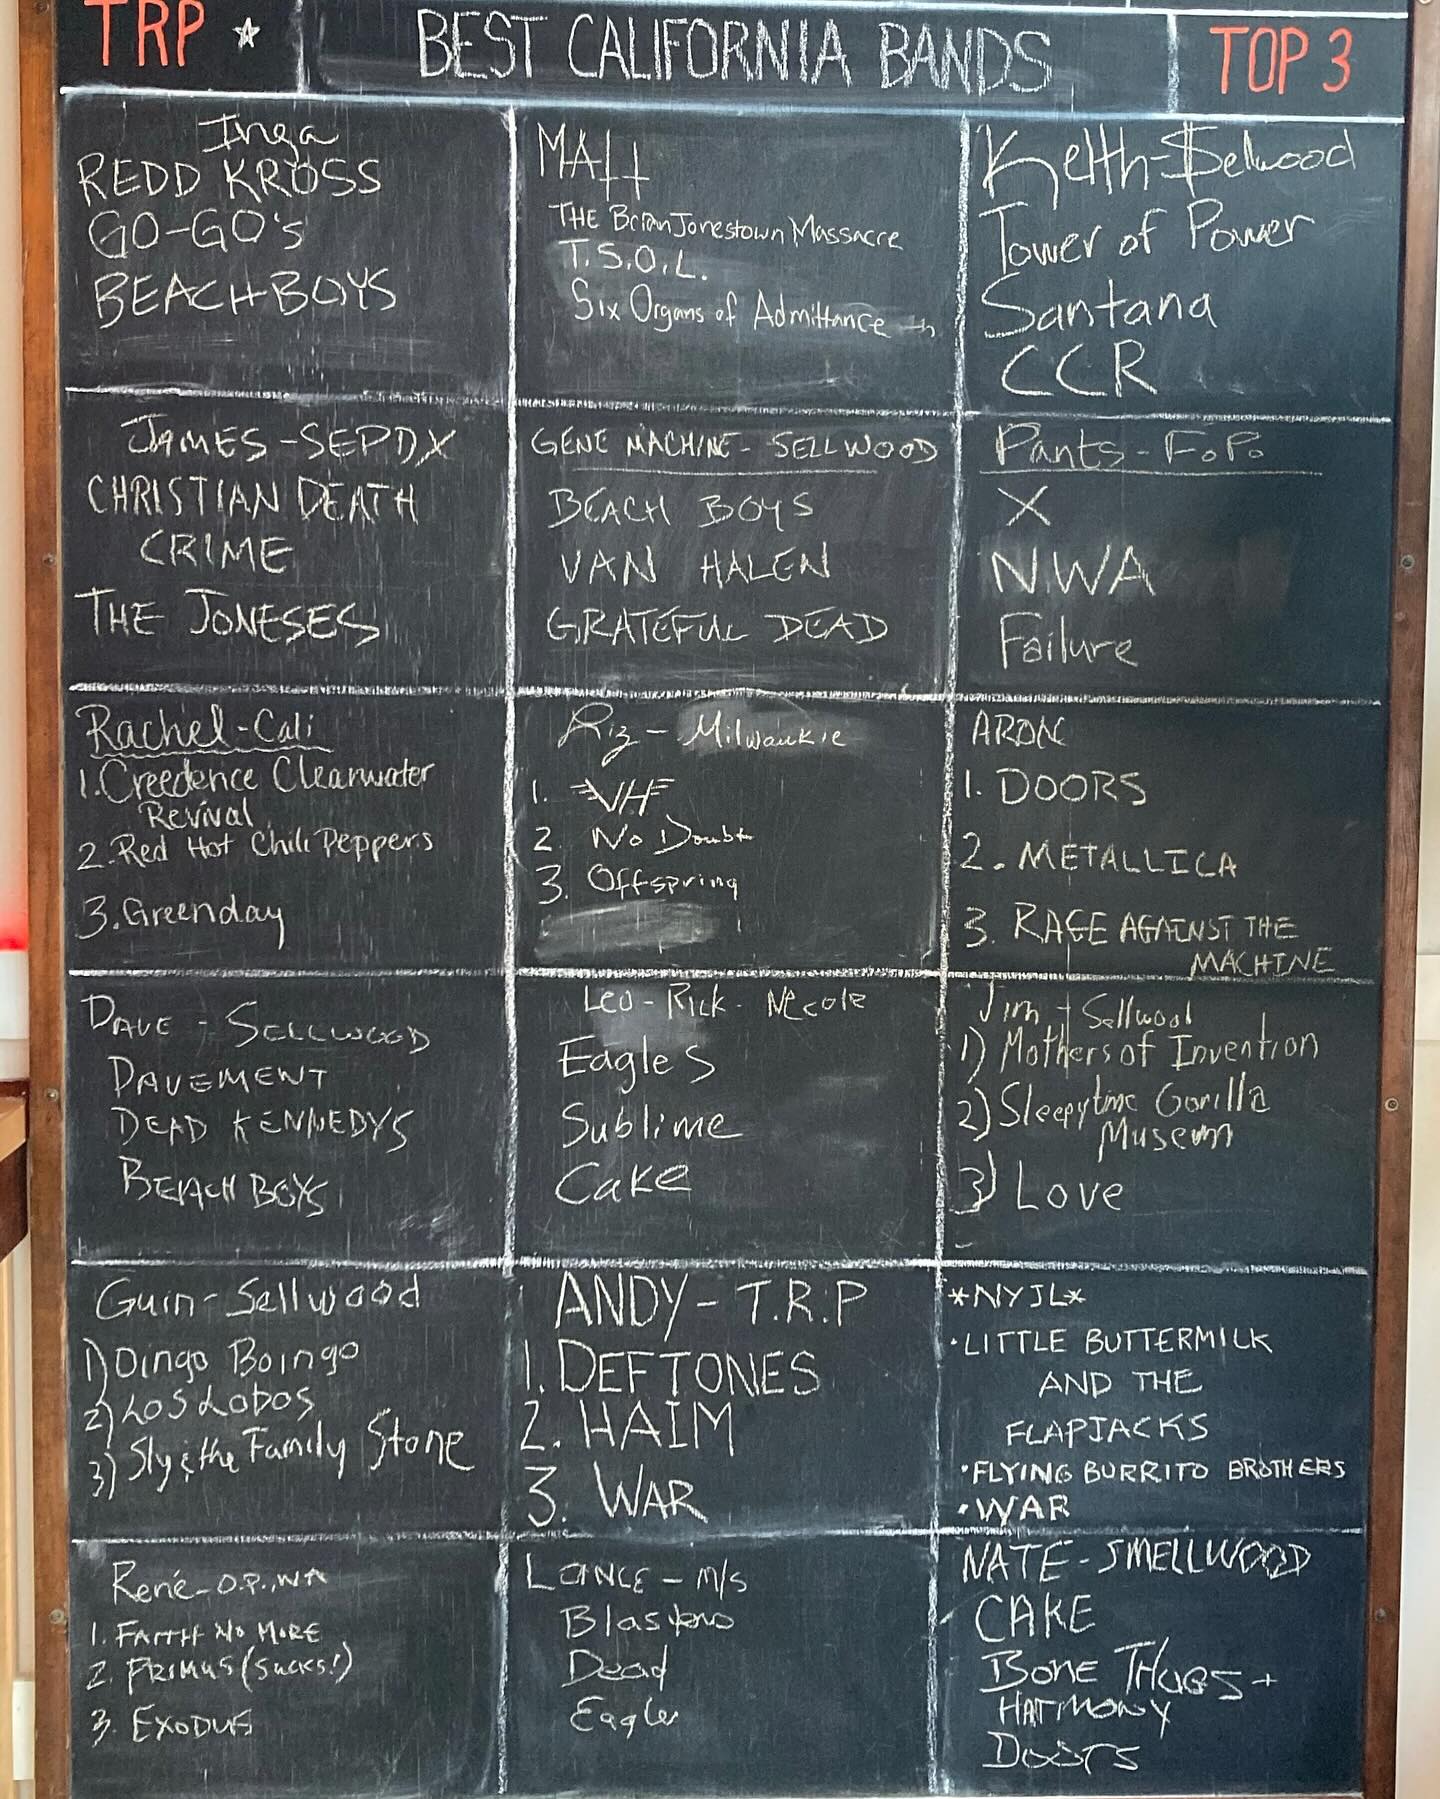 TRP ★
BEST CALIFORNIA BANDS
TOP 3
Inga
REDD KROSS
GO-GO's
BEACH BOYS
MATT
THE Brian Jonestown Massacre
T.S.O.L.
Six Organs of Admittance →
Keith-$ellwood
Tower of Power
Santana
CCR
JAMES-SEPDX
CHRISTIAN DEATH
CRIME
THE JONESES
GENE MACHINE - SELLWOOD
BEACH BOYS
VAN HALEN
GRATEFUL DEAD
Pants-F.o.P.
X
NWA
Failure
Rachel-Cali
1. Creedence Clearwater
Revival
2. Red Hot Chili Peppers
3. Greenday
Riz - Milwaukie
1. VH
2. No Doubt
3. Offspring
ARON
1. DOORS
2. METALLICA
3. RAGE AGAINST THE
MACHINE
DAVE - SELLWOOD
PAVEMENT
DEAD KENNEDYS
BEACH BOYS
Leo - Rick - Necole
Eagles
Sublime
Cake
Jim - Sellwood
1) Mothers of Invention
2) Sleepytime Gorilla
Museum
3) Love
Guin - Sellwood
1) Oingo Boingo
2) Los Lobos
3) Sly & the Family Stone
ANDY - T.R.P
1. DEFTONES
2. HAIM
3. WAR
*NYJL*
• LITTLE BUTTERMILK
AND THE
FLAPJACKS
• FLYING BURRITO BROTHERS
• WAR
René - O.P., WA
1. FAITH NO MORE
2. PRIMUS (SUCKS!)
3. EXODUS
LANCE - M/S
Blasters
Dead
Eagles
NATE - SMELLWOOD
CAKE
BONE THUGS +
HARMONY
DOORS